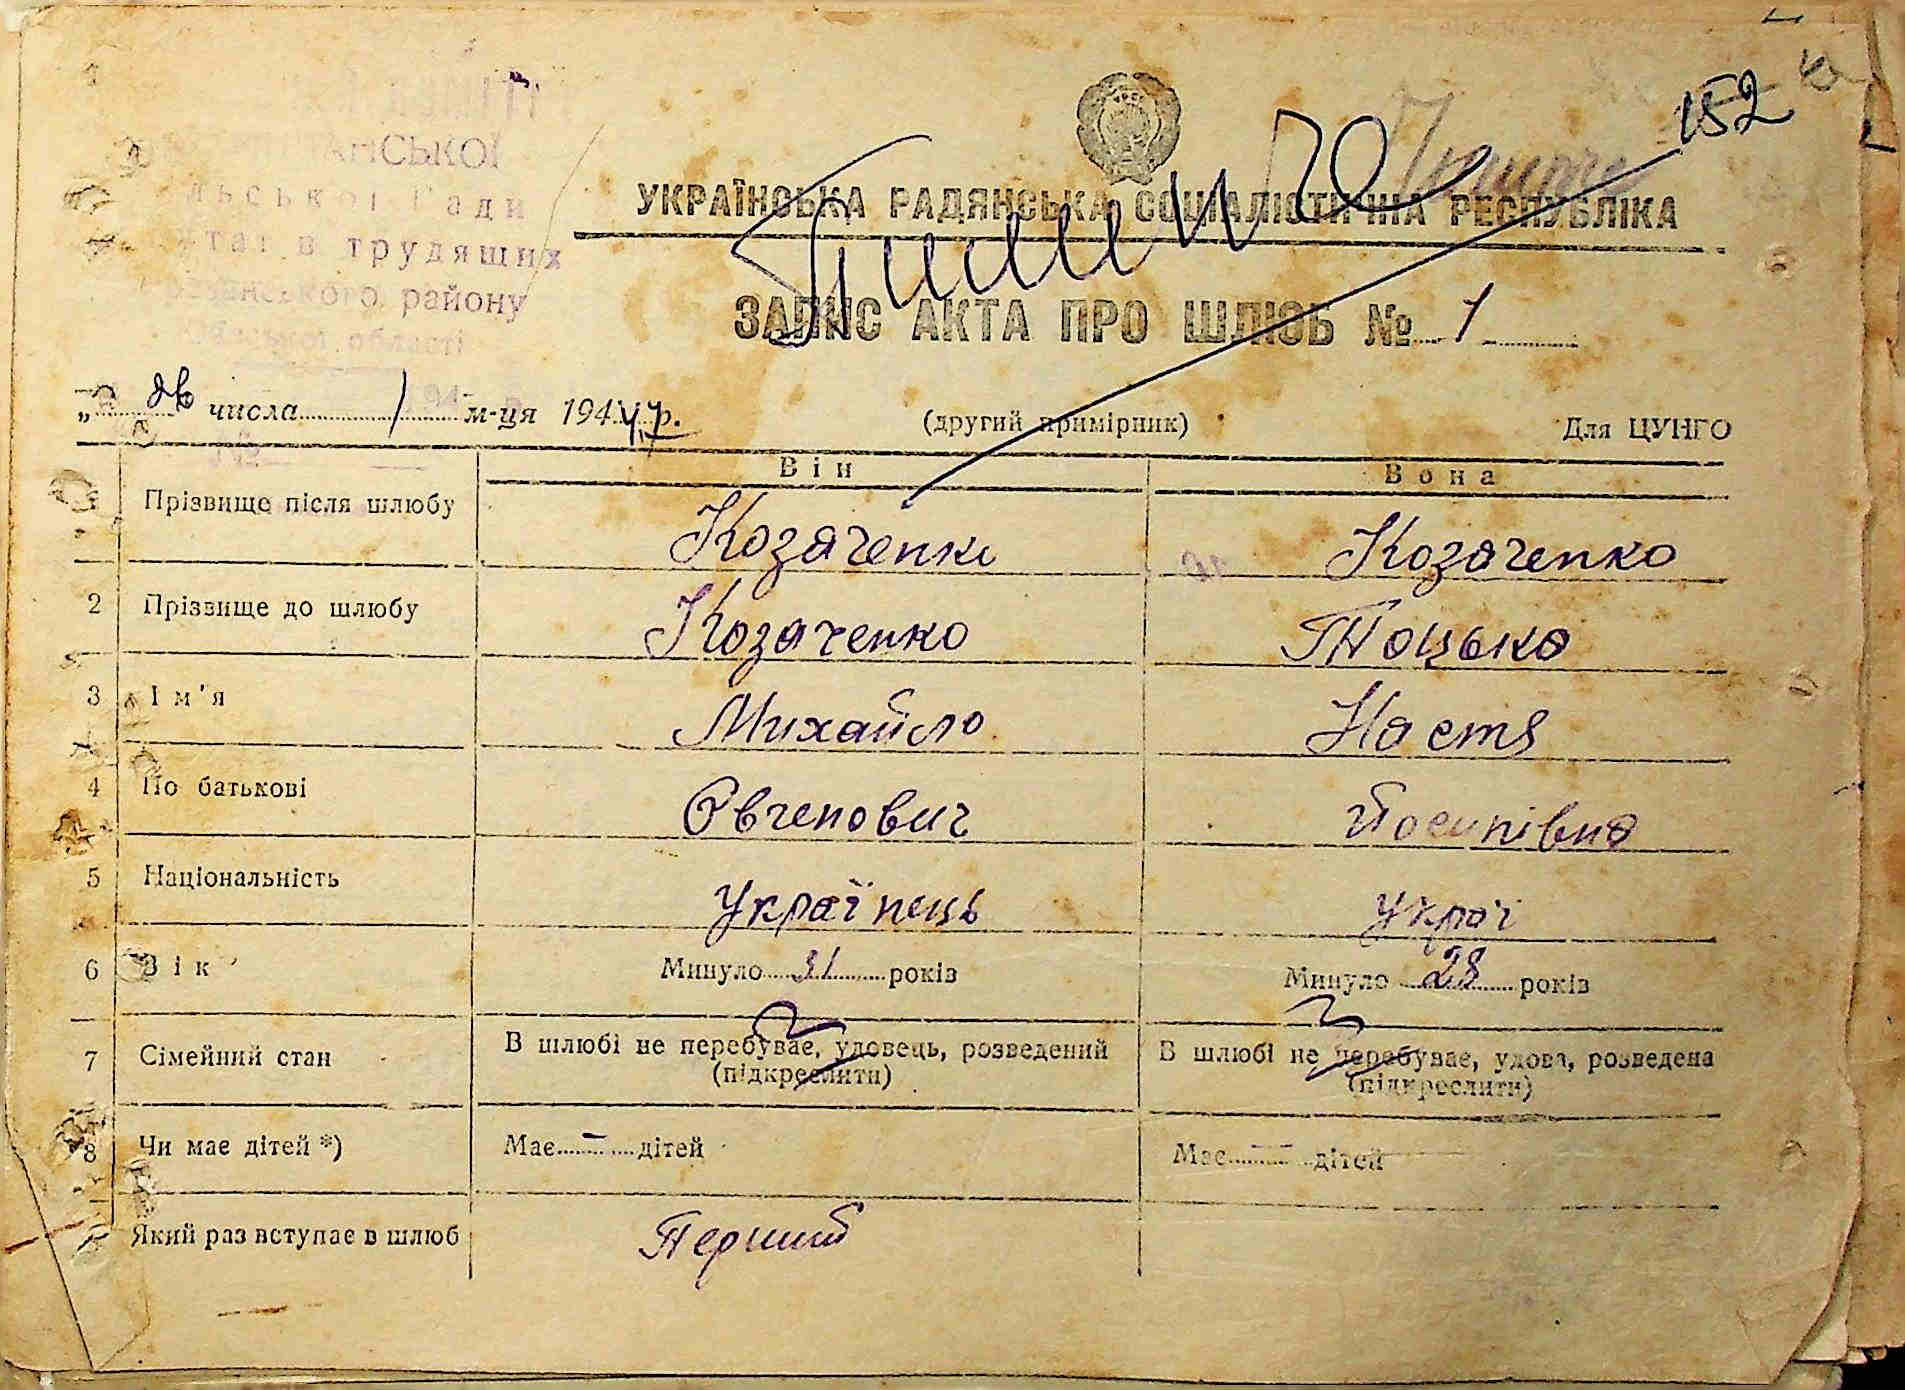 152
УКРАЇНСЬКА РАДЯНСЬКА СОЦІАЛІСТИЧНА РЕСПУБЛІКА
трудящих
району
області
ЗАПИС АКТА ПРО ШЛЮБ № 1
числа 1 м-ця 194 р.
(другий примірник)
Для ЦУНГО
Він Вона
Прізвище після шлюбу Козаченко Козаченко
2 Прізвище до шлюбу Козаченко Тоцька
3 Ім'я Михайло Настя
4 По батькові Овченович Йосипівна
5 Національність Українець Украї
6 Вік Минуло 31 років Минуло 28 років
7 Сімейний стан В шлюбі не перебуває, удовець, розведений (підкреслити) В шлюбі не перебуває, удова, розведена (підкреслити)
8 Чи має дітей *) Має — дітей Має — дітей
Який раз вступає в шлюб Перший